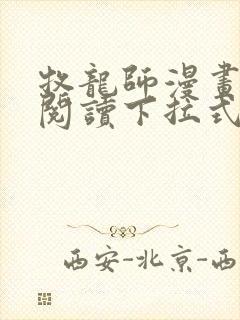 牧龍師漫畫
閱讀下拉式
西安-北京-西